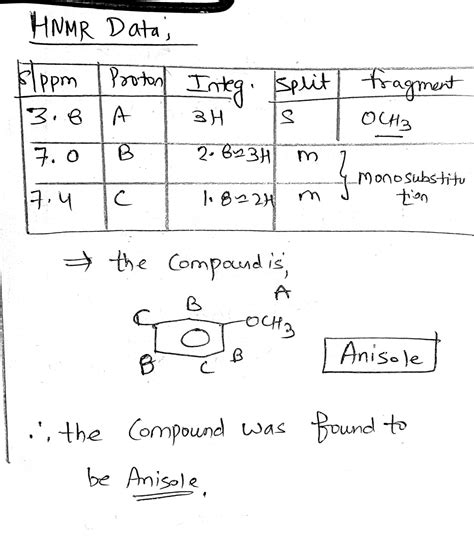 HNMR Data;
δ/ppm Proton Integ. split fragment
3.8 A 3H S OCH3
7.0 B 2.8≃3H m
monosubstitu
7.4 C 1.8≃2H m tion
⇒ the Compound is,
A
B
C OCH3
B C B
Anisole
∴ the Compound was found to
be Anisole.